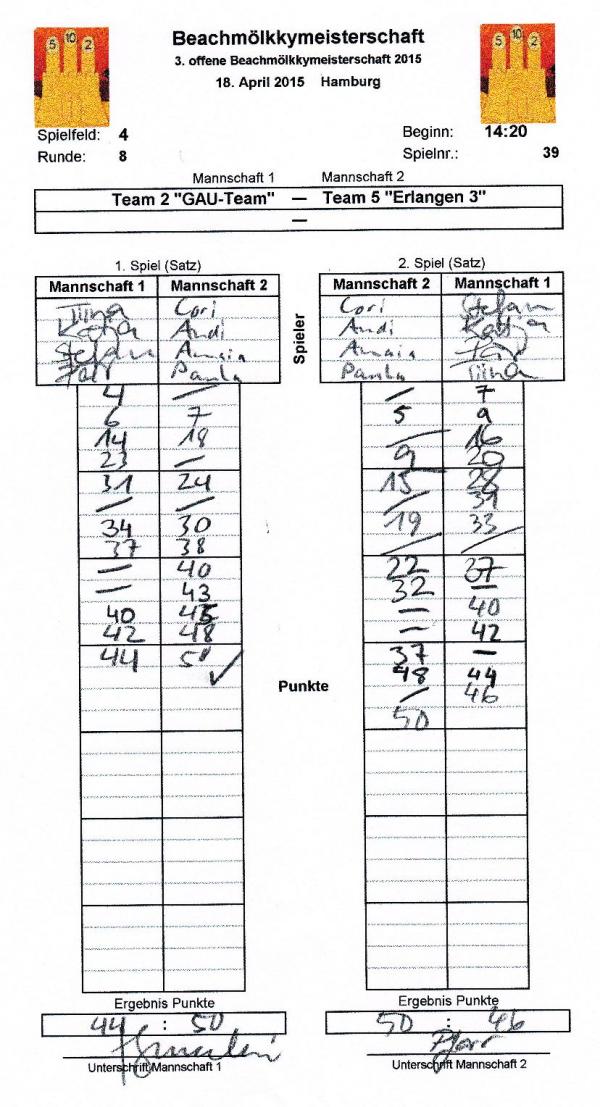 5 10 2
5 10 2
Beachmölkkymeisterschaft
3. offene Beachmölkkymeisterschaft 2015
18. April 2015 Hamburg
Spielfeld: 4
Beginn: 14:20
Runde: 8
Spielnr.: 39
Mannschaft 1 Mannschaft 2
Team 2 "GAU-Team" — Team 5 "Erlangen 3"
—
1. Spiel (Satz)
Mannschaft 1 Mannschaft 2
Tiina Cori
Katja Andi
Stefan Amaia
Paula
4 /
6 7
14 18
23 —
31 24
/ /
34 30
37 38
— 40
— 43
40 45
42 48
44 50
2. Spiel (Satz)
Mannschaft 2 Mannschaft 1
Cori Stefan
Andi Katja
Amaia
Paula Tiina
/ 7
5 9
/ 16
9 20
15 28
/ 31
19 33
/ /
22 37
32 —
— 40
— 42
37 —
48 44
/ 46
50
Spieler
Punkte
Ergebnis Punkte
44 : 50
Unterschrift Mannschaft 1
Ergebnis Punkte
50 : 46
Unterschrift Mannschaft 2